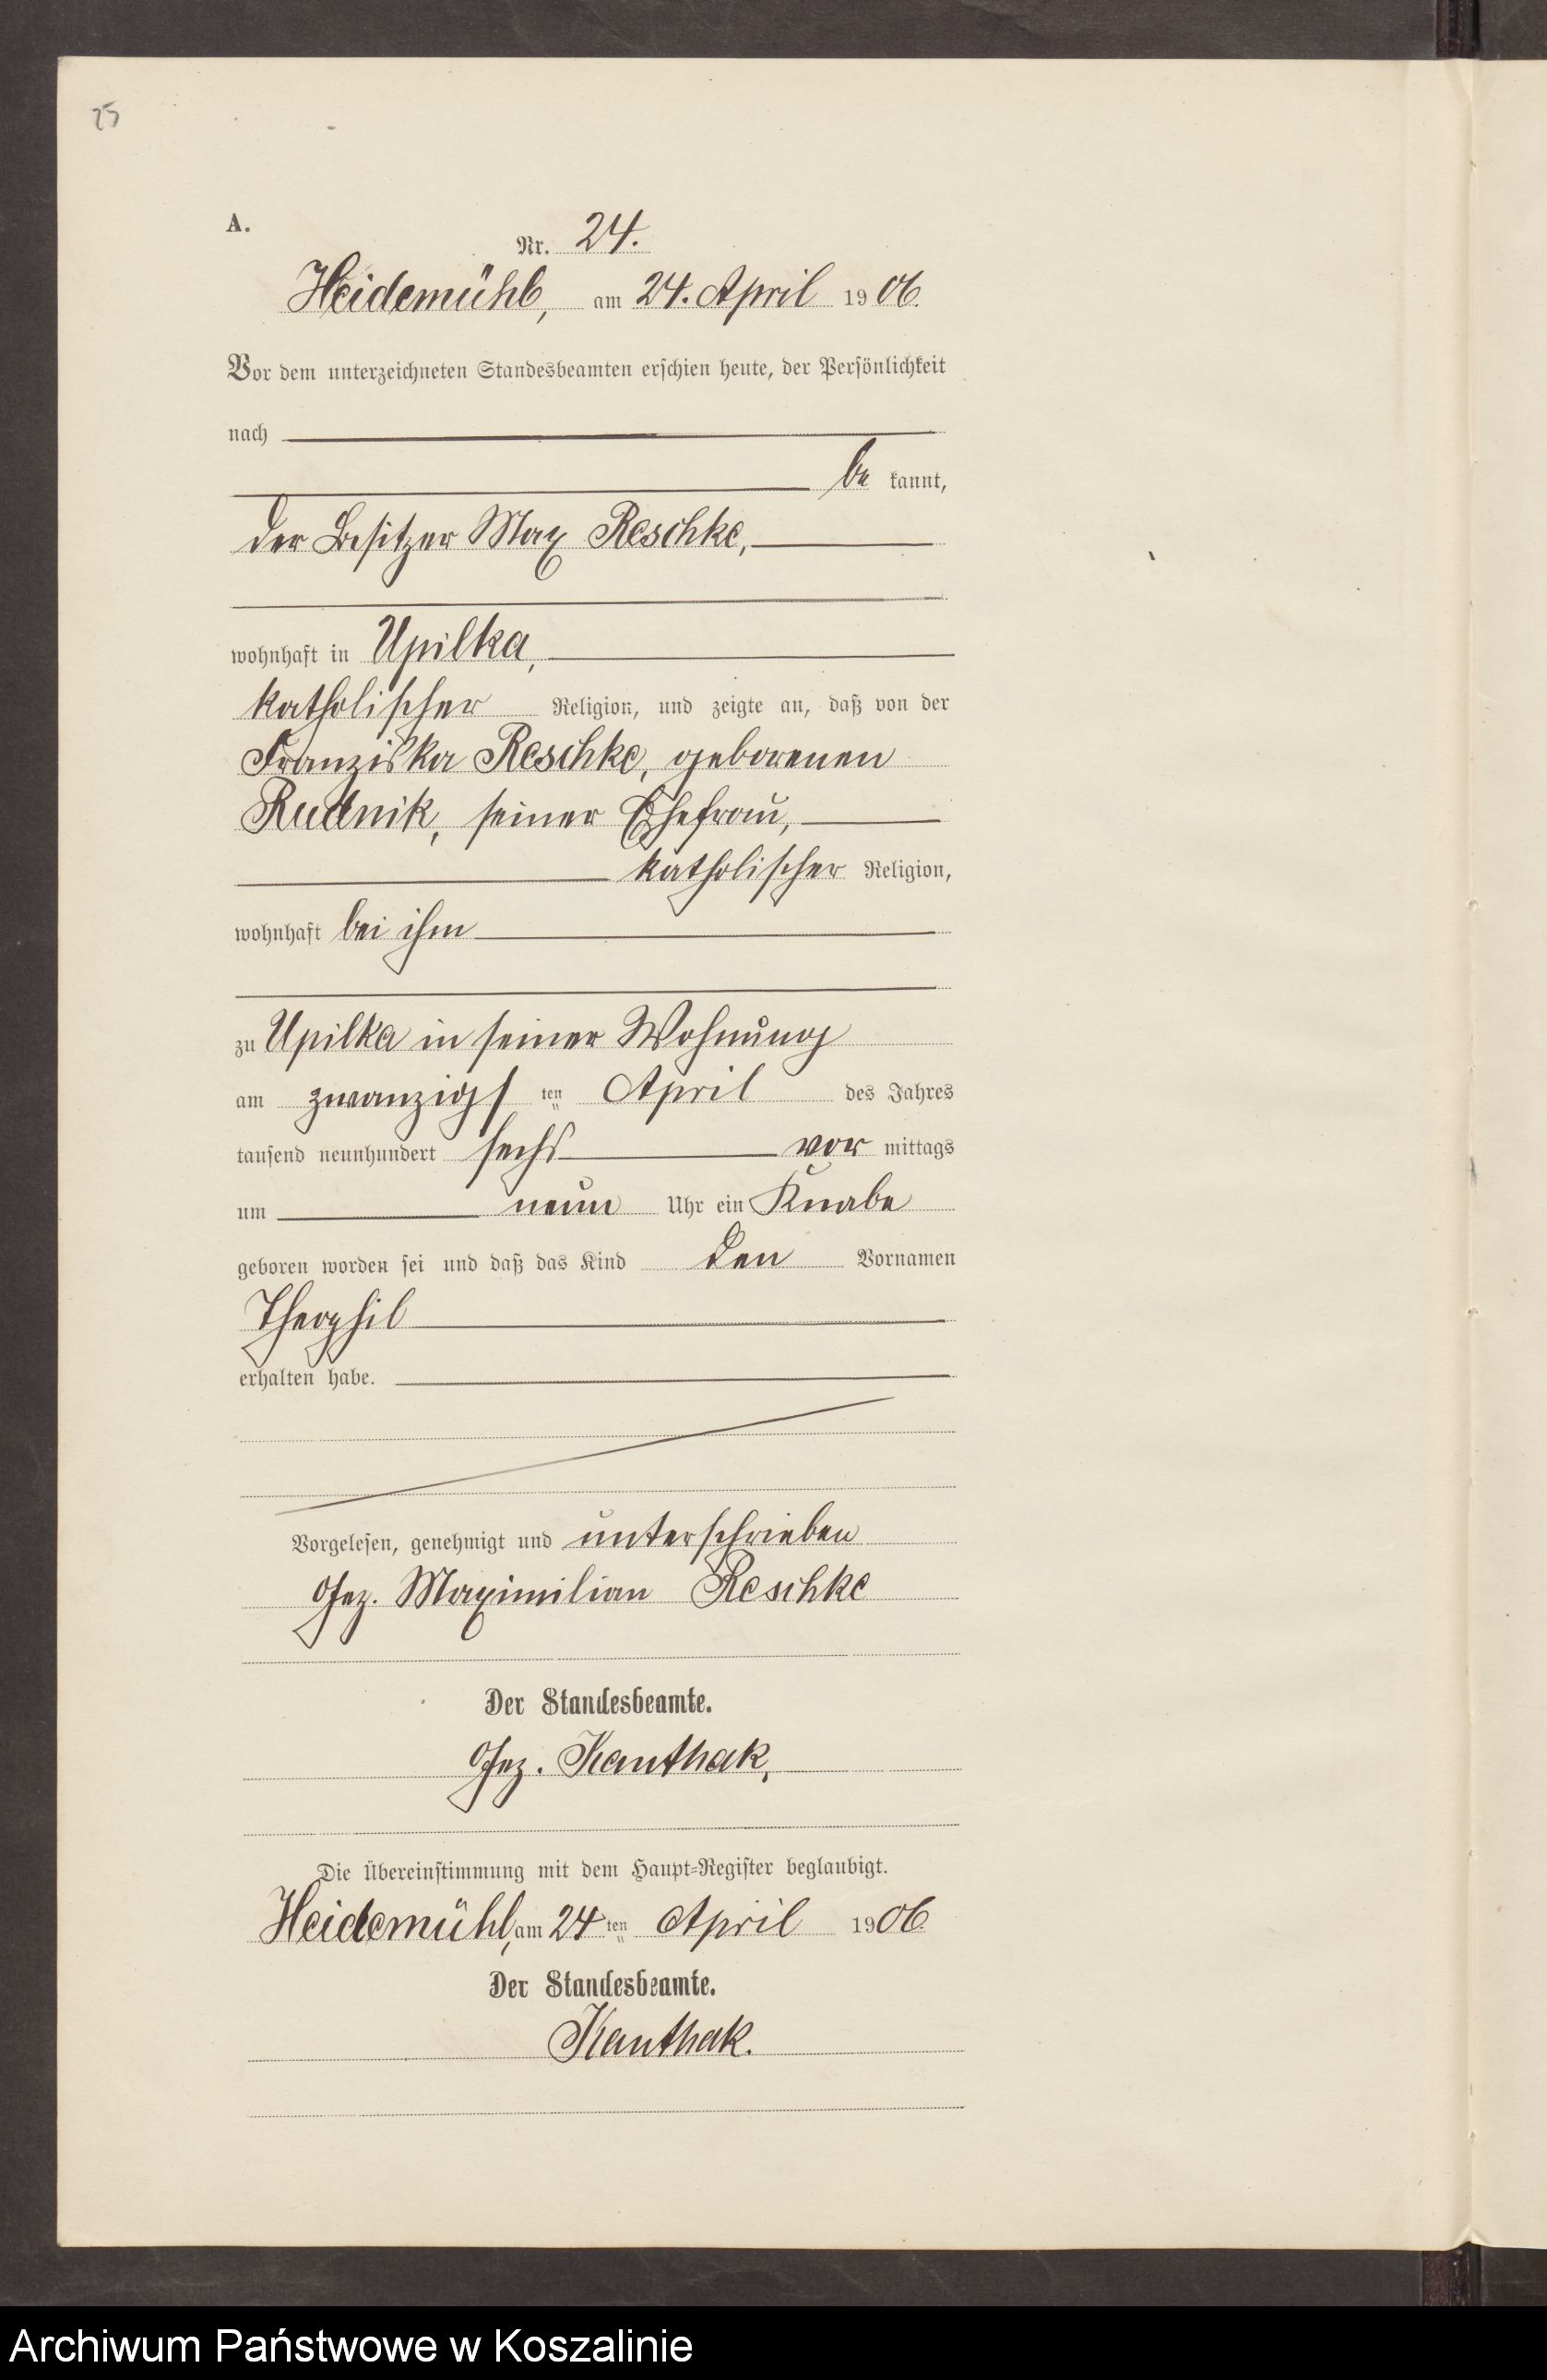 25
A.
Nr. 24.
Heidemühl, am 24. April 1906.
Vor dem unterzeichneten Standesbeamten erschien heute, der Persönlichkeit
nach
be kannt,
der Besitzer Max Reschke,
wohnhaft in Upilka,
katholischer Religion, und zeigte an, daß von der
Franziska Reschke, geborenen
Rudnik, seiner Ehefrau,
katholischer Religion,
wohnhaft bei ihm
zu Upilka in seiner Wohnung
am zwanzigs ten April des Jahres
tausend neunhundert sechs vor mittags
um neun Uhr ein Knabe
geboren worden sei und daß das Kind den Vornamen
Theophil
erhalten habe.
Vorgelesen, genehmigt und unterschrieben
Gez. Maximilian Reschke
Der Standesbeamte.
Gez. Kanthak,
Die Übereinstimmung mit dem Haupt-Register beglaubigt.
Heidemühl, am 24 ten April 1906.
Der Standesbeamte.
Kanthak.
Archiwum Państwowe w Koszalinie